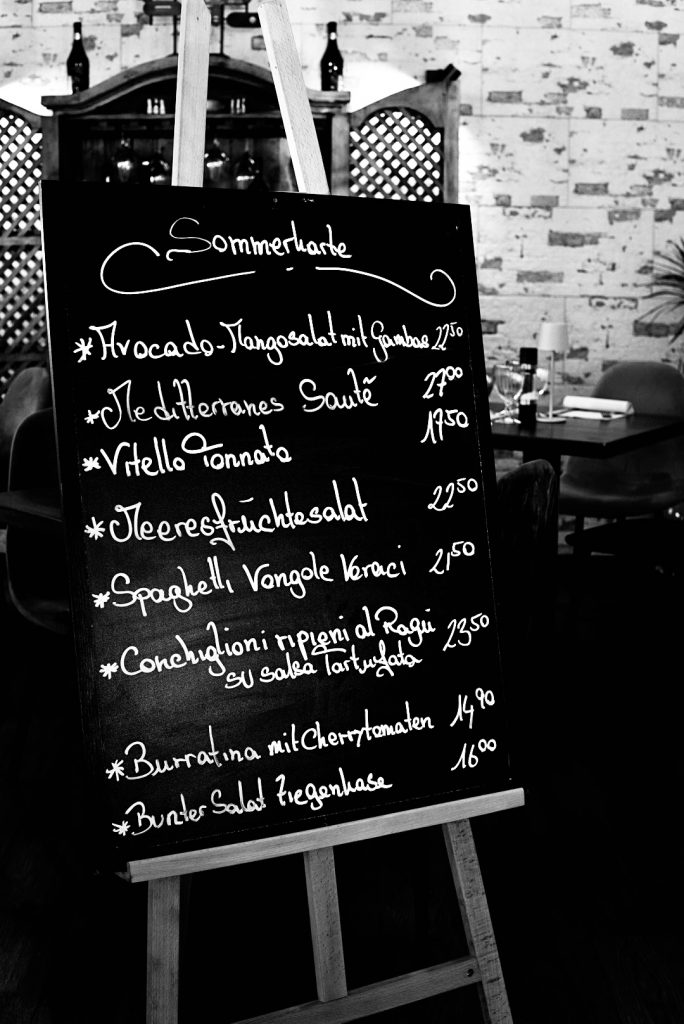 Sommerkarte
*Avocado-Mangosalat mit Gambas 22⁵⁰
*Mediterranes Sautẽ 27⁰⁰
*Vitello Tonnato 17⁵⁰
*Meeresfrüchtesalat 22⁵⁰
*Spaghetti Vongole Veraci 21⁵⁰
*Conchiglioni ripieni al Ragú 23⁵⁰
su salsa Tartufata
*Burratina mit Cherrytomaten 14,90
*Bunter Salat Ziegenkäse 16⁰⁰